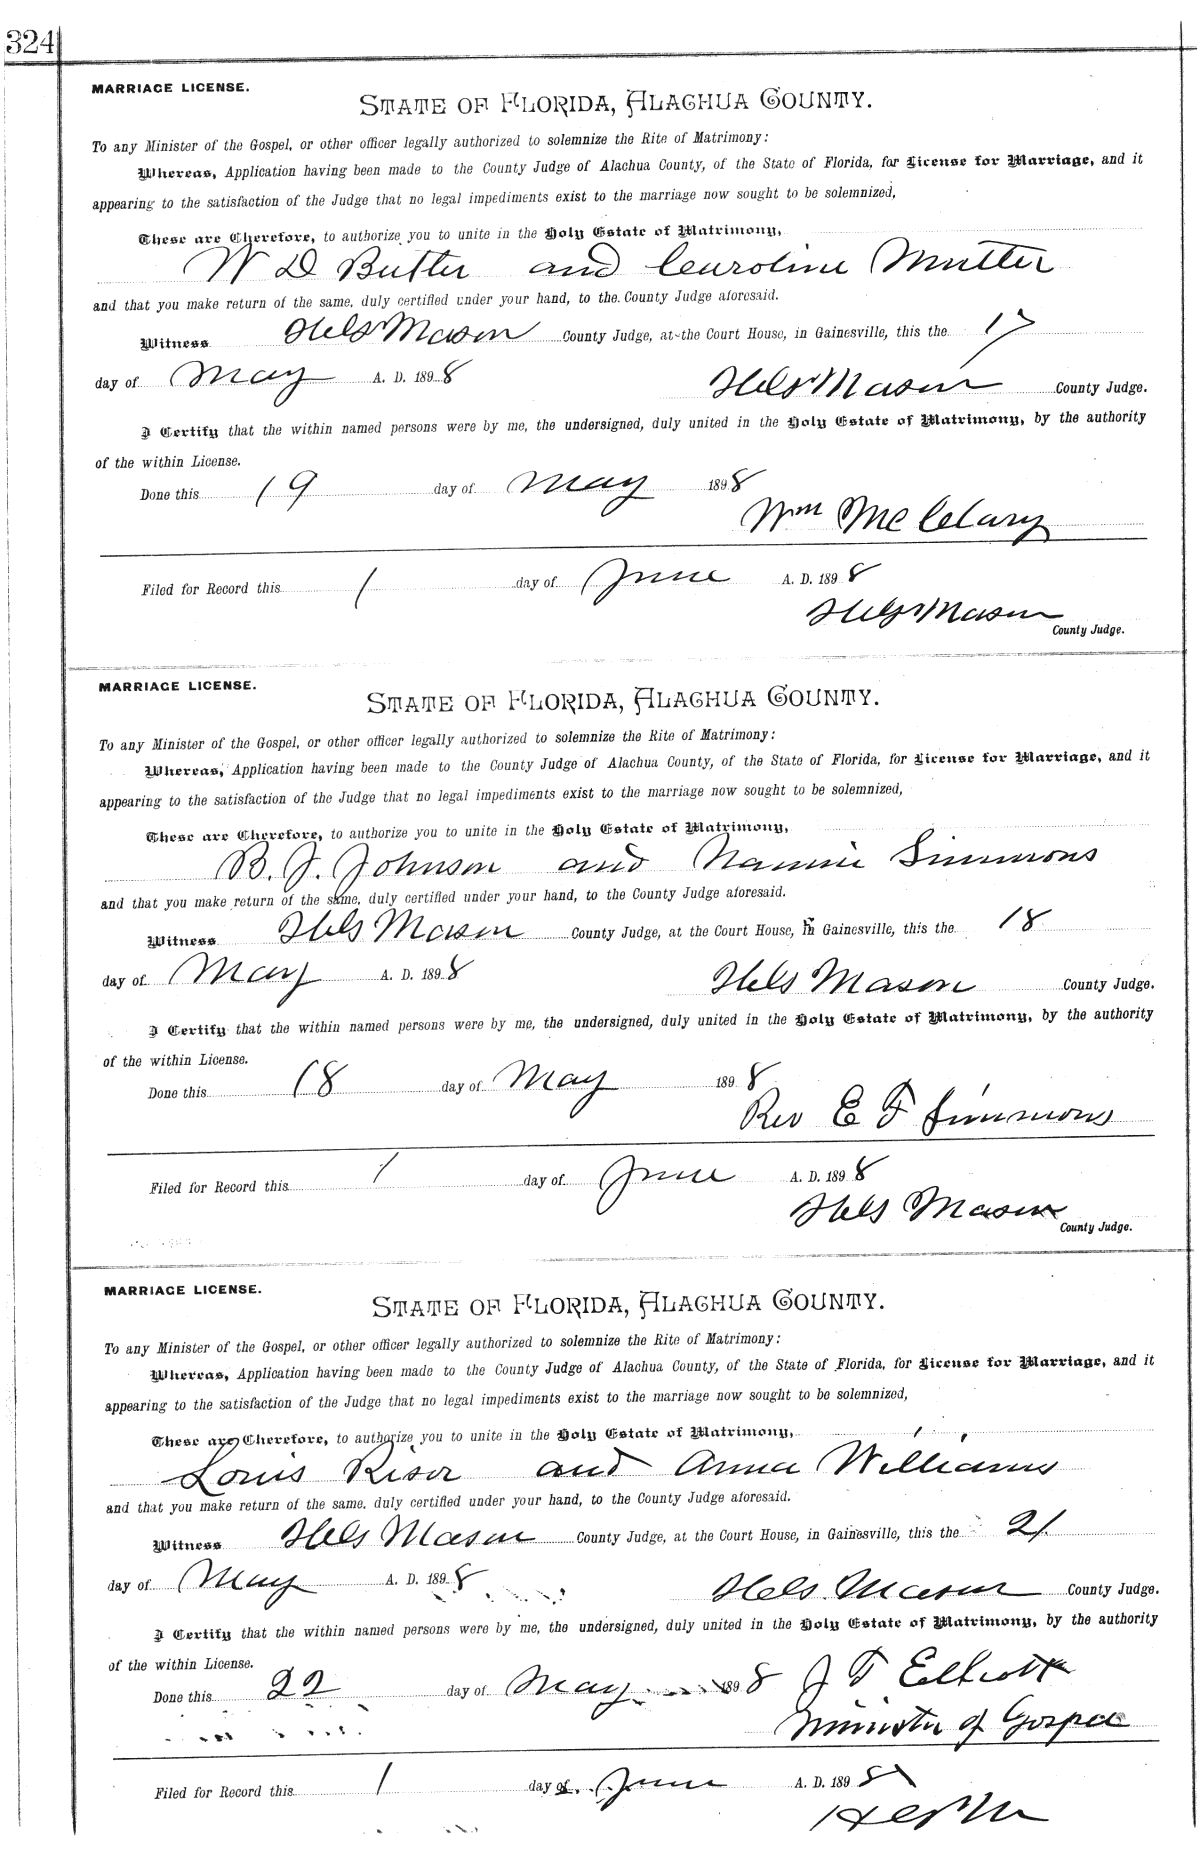 324
MARRIAGE LICENSE.
STATE OF FLORIDA, ALACHUA COUNTY.
To any Minister of the Gospel, or other officer legally authorized to solemnize the Rite of Matrimony:
Whereas, Application having been made to the County Judge of Alachua County, of the State of Florida, for License for Marriage, and it
appearing to the satisfaction of the Judge that no legal impediments exist to the marriage now sought to be solemnized,
These are Therefore, to authorize you to unite in the Holy Estate of Matrimony,
W D Butler and Caroline
and that you make return of the same, duly certified under your hand, to the County Judge aforesaid.
Witness Mason County Judge, at the Court House, in Gainesville, this the 17
day of May A. D. 1898 Mason County Judge.
I Certify that the within named persons were by me, the undersigned, duly united in the Holy Estate of Matrimony, by the authority
of the within License.
Done this 19 day of May 1898
Wm McClary
Filed for Record this 1 day of June A. D. 1898
Mason
County Judge.
MARRIAGE LICENSE.
STATE OF FLORIDA, ALACHUA COUNTY.
To any Minister of the Gospel, or other officer legally authorized to solemnize the Rite of Matrimony:
Whereas, Application having been made to the County Judge of Alachua County, of the State of Florida, for License for Marriage, and it
appearing to the satisfaction of the Judge that no legal impediments exist to the marriage now sought to be solemnized,
These are Therefore, to authorize you to unite in the Holy Estate of Matrimony,
B. J. Johnson and Nannie Simmons
and that you make return of the same, duly certified under your hand, to the County Judge aforesaid.
Witness Mason County Judge, at the Court House, in Gainesville, this the 18
day of May A. D. 1898 Mason County Judge.
I Certify that the within named persons were by me, the undersigned, duly united in the Holy Estate of Matrimony, by the authority
of the within License.
Done this 18 day of May 1898
Rev E F Simmons
Filed for Record this 1 day of June A. D. 1898
Mason
County Judge.
MARRIAGE LICENSE.
STATE OF FLORIDA, ALACHUA COUNTY.
To any Minister of the Gospel, or other officer legally authorized to solemnize the Rite of Matrimony:
Whereas, Application having been made to the County Judge of Alachua County, of the State of Florida, for License for Marriage, and it
appearing to the satisfaction of the Judge that no legal impediments exist to the marriage now sought to be solemnized,
These are Therefore, to authorize you to unite in the Holy Estate of Matrimony,
Louis Riser and Anna Williams
and that you make return of the same, duly certified under your hand, to the County Judge aforesaid.
Witness Mason County Judge, at the Court House, in Gainesville, this the 21
day of May A. D. 1898 Mason County Judge.
I Certify that the within named persons were by me, the undersigned, duly united in the Holy Estate of Matrimony, by the authority
of the within License.
Done this 22 day of May 1898 J T Elliott
Minister of Gospel
Filed for Record this 1 day of June A. D. 1898